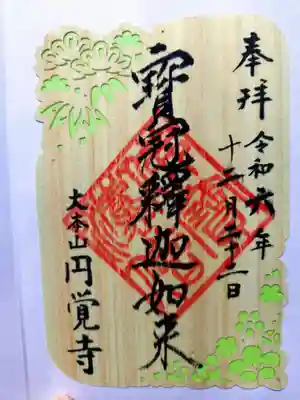 奉拝
令和六年
十二月二十二日
寶冠釋迦如来
大本山円覚寺